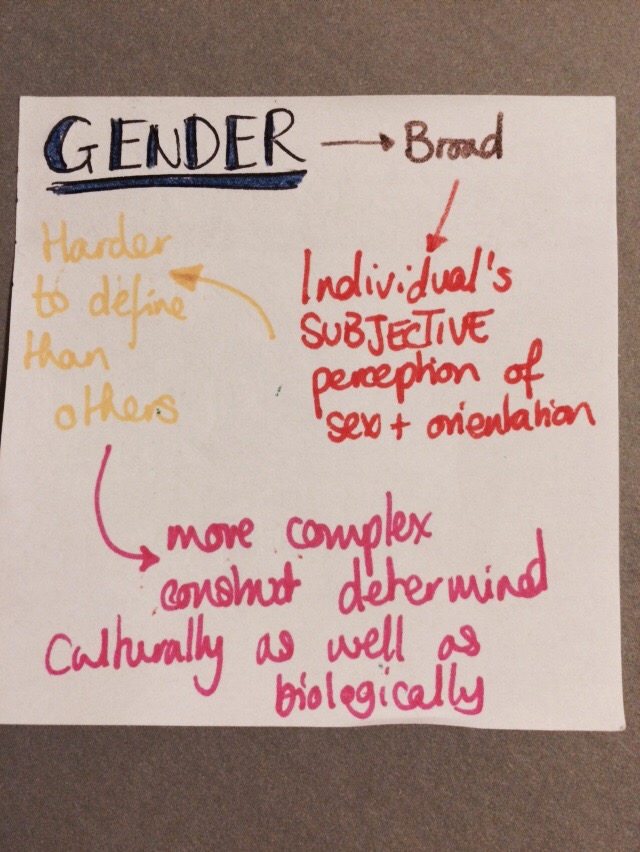 GENDER → Broad
Individual's
SUBJECTIVE
perception of
sex + orientation
Harder
to define
than
others
more complex
construct determined
Culturally as well as
biologically